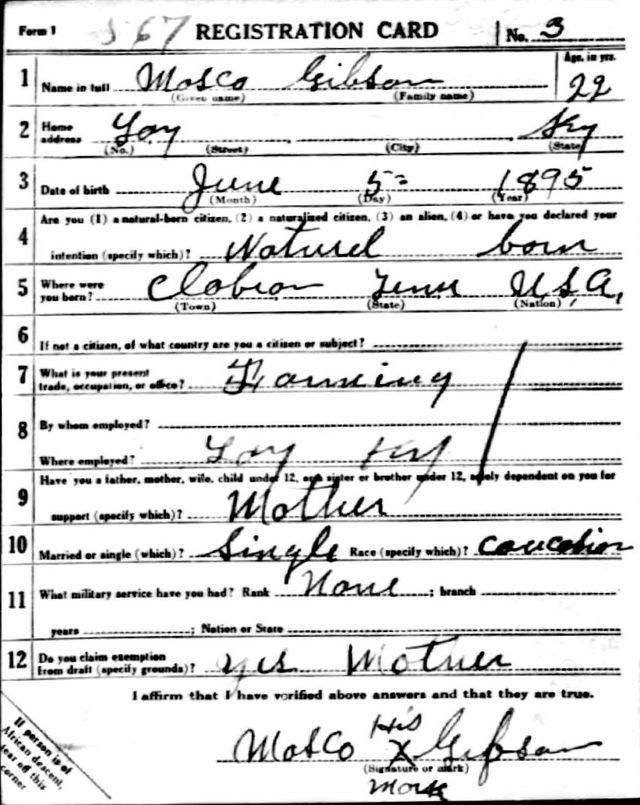 Form 1 567 REGISTRATION CARD No. 3
1 Name in full Mosco Gibson Age, in yrs. 22
(Given name) (Family name)
2 Home address Loy Ky
(No.) (Street) (City) (State)
3 Date of birth June 5 1895
(Month) (Day) (Year)
4 Are you (1) a natural-born citizen, (2) a naturalized citizen, (3) an alien, (4) or have you declared your
intention (specify which)? Naturel born
5 Where were you born? Tenn U.S.A.
(Town) (State) (Nation)
6 If not a citizen, of what country are you a citizen or subject?
7 What is your present trade, occupation, or office? Farming
8 By whom employed?
Where employed? Loy Ky
9 Have you a father, mother, wife, child under 12, or a sister or brother under 12, solely dependent on you for
support (specify which)? Mother
10 Married or single (which)? Single Race (specify which)? Caucasion
11 What military service have you had? Rank None ; branch
years ; Nation or State
12 Do you claim exemption from draft (specify grounds)? yes Mother
I affirm that I have verified above answers and that they are true.
His
Mosco X Gibson
(Signature or mark)
Mark
If person is of
African descent,
tear off this
corner